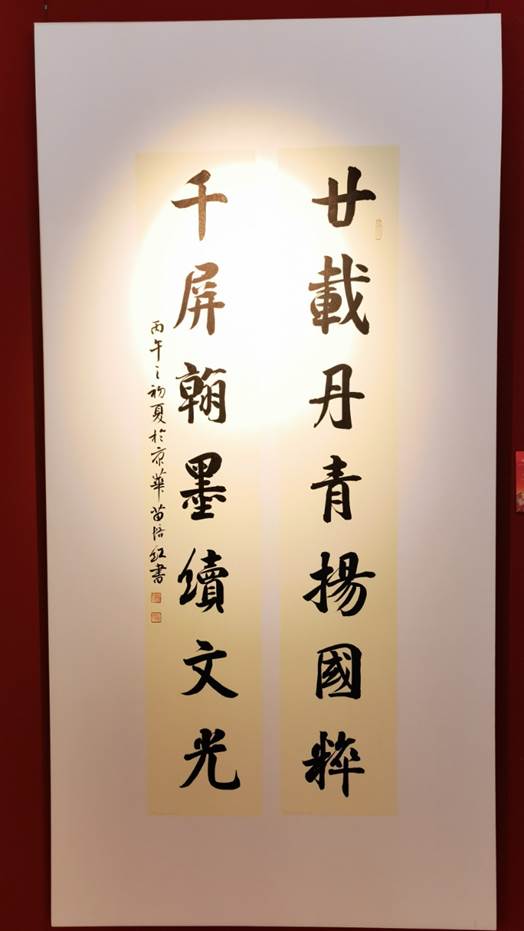 廿載丹青揚國粹
千屏翰墨續文光
丙午之初夏於京華苗培紅書